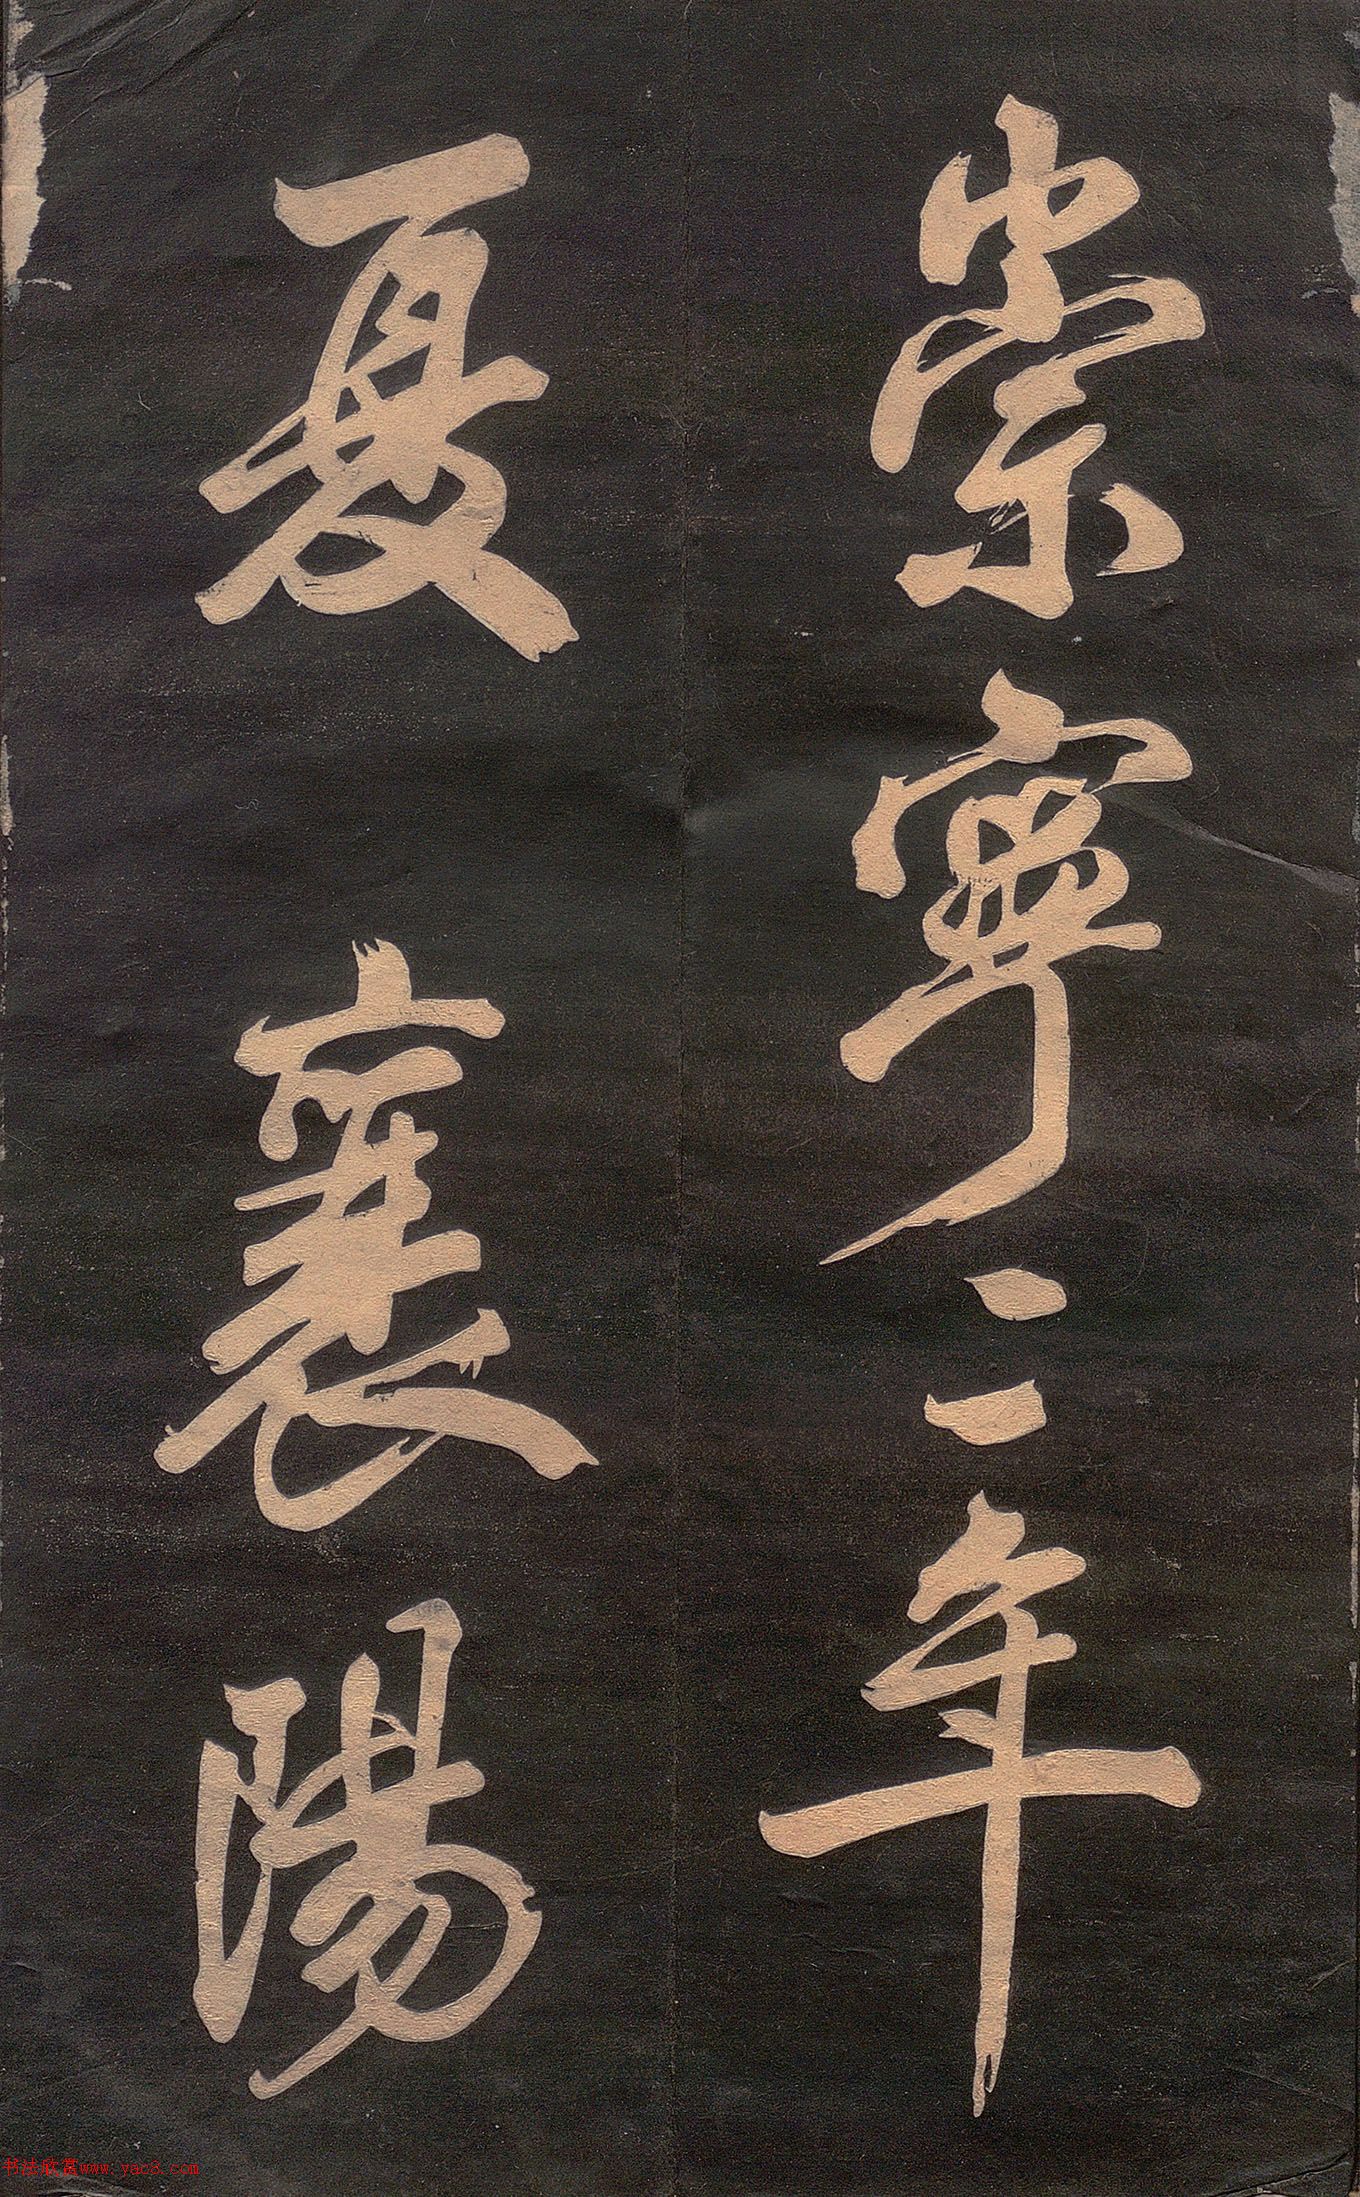 崇寧二年
夏襄陽
书法欣赏www.yac8.com